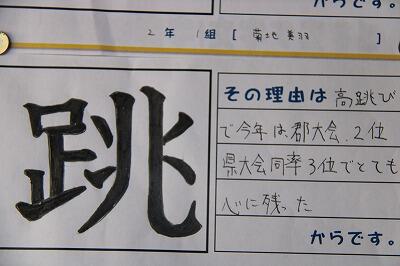 からです。
2年 1組 [ 菊地 美羽 ]
跳
その理由は 高跳び
で今年は郡大会.2位
県大会同率3位でとても
心に残った
からです。